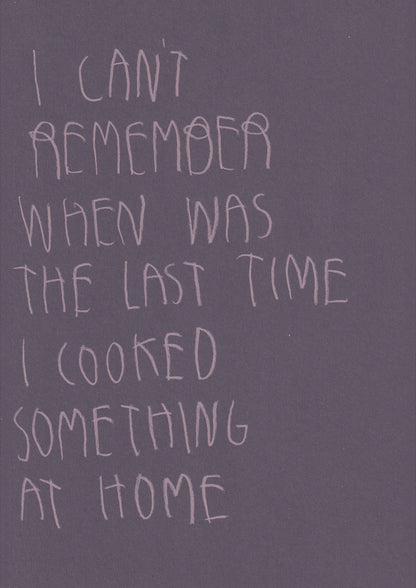 I CAN'T
REMEMBER
WHEN WAS
THE LAST TIME
I COOKED
SOMETHING
AT HOME